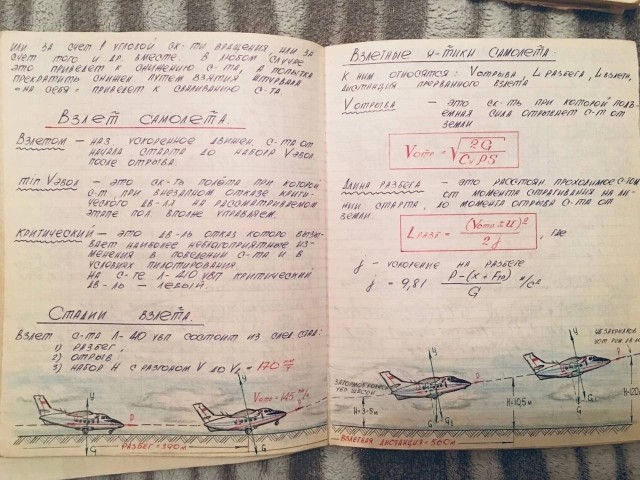 или за счет ↑ угловой ск-ти вращения, или за
счет того и др. вместе. В любом случае
это приведет к снижению с-та, а попытка
прекратить снижен. путем взятия штурвала
«на себя» приведет к сваливанию с-та.
Взлет самолета.
Взлетом – наз ускоренное движен. с-та от
начала старта до набора Vэвол
после отрыва.
min Vэвол – это ск-ть полета при которой
с-т при внезапном отказе крити-
ческого дв-ля на рассматриваемом
этапе пол. вполне управляем.
Критический – это дв-ль отказ которого вызы-
вает наиболее неблагоприятные из-
менения в поведении с-та и в
условиях пилотирования
на с-те Л-410 УВП критический
дв-ль – левый.
Стадии взлета.
Взлет с-та Л-410 УВП состоит из след стад:
1) разбег,
2) отрыв
3) набор H с разгоном V до V₂ = 170
Vотр = 145
G
Разбег = 390м
Взлетные х-тики самолета.
К ним относятся: Vотрыва, L разбега, L взлетн,
дистанция прерванного взлета
Vотрыва – это ск-ть при которой подъ-
емная сила отрывает с-т от
земли
Vотр = √2G / CyρS
Длина разбега – это расстоян проходимое с-том
от момента страгивания на ли-
нии старта, до момента отрыва с-та от
земли.
Lразб = (Vотр ± u)² / 2j , где
j – ускорение на разбеге
j = 9,81 P-(X+Fтр) / G м/с²
уб. шасси
H=3-5м
Y
P
G
H=10,5м
Y
P
G
H=120м
Взлетная дистанция = 560м